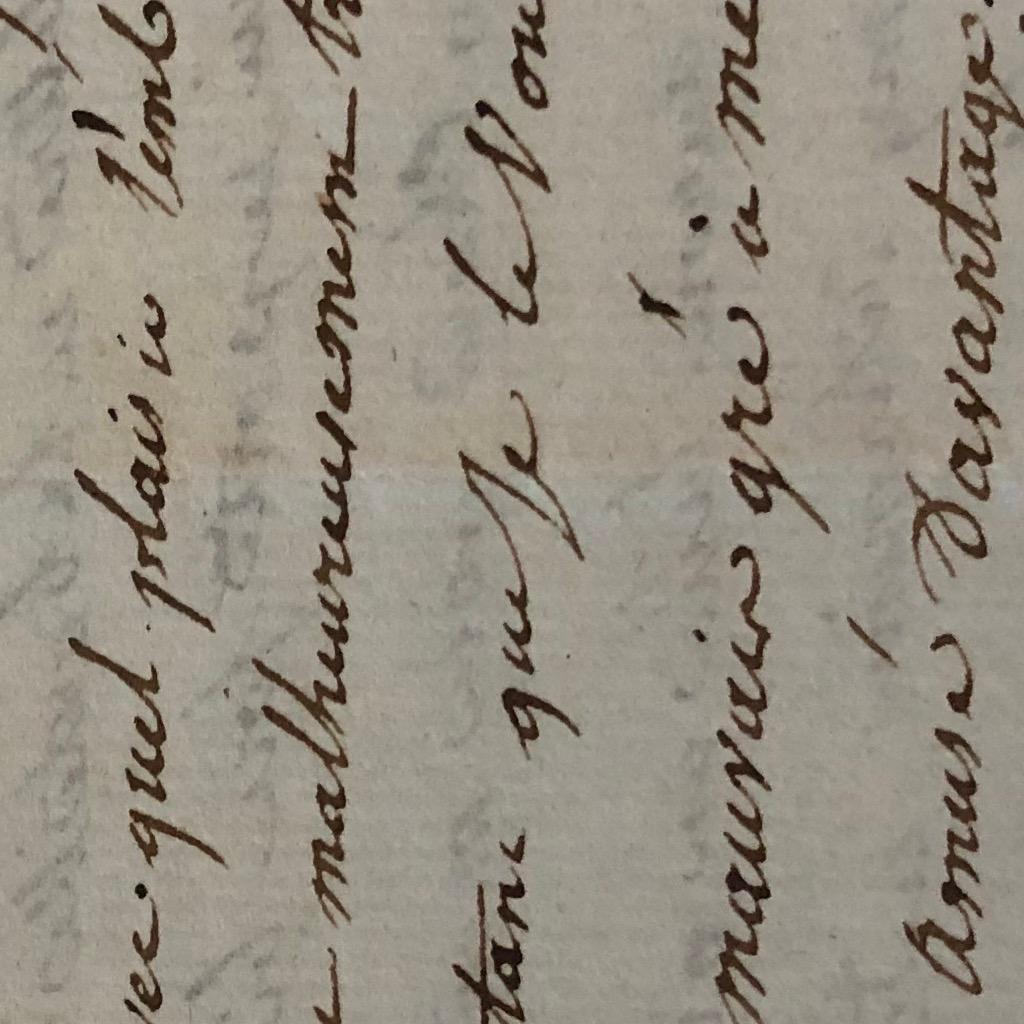 ec quel plaisir l'emb
malheureusement tr
tant que Je le Vou
mauvais gré a me
amusé Davantage